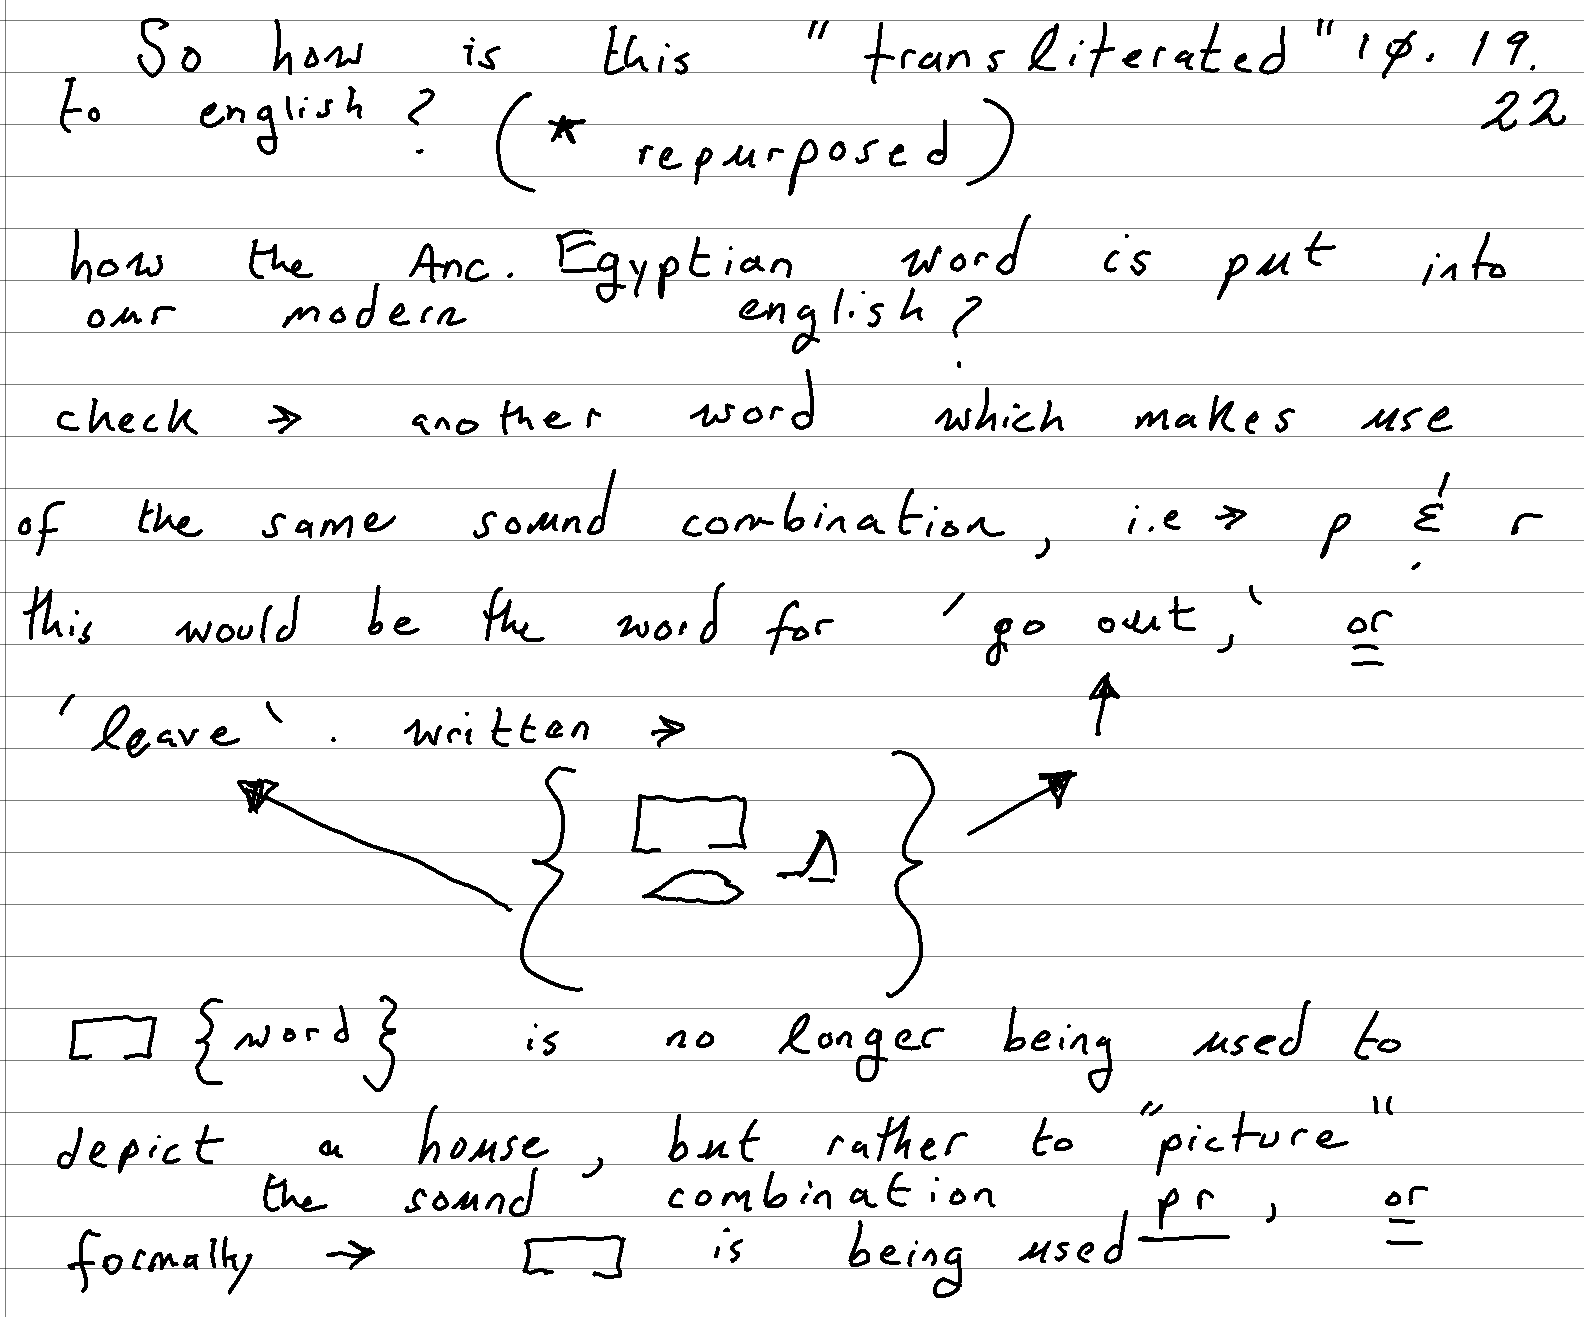 So how is this "transliterated" 10. 19. 22
to english? (* repurposed)
how the Anc. Egyptian word is put into
our modern english?
check → another word which makes use
of the same sound combination, i.e → p & r
this would be the word for 'go out,' or
'leave'. written →
{word} is no longer being used to
depict a house, but rather to "picture"
the sound combination pr, or
formally → is being used